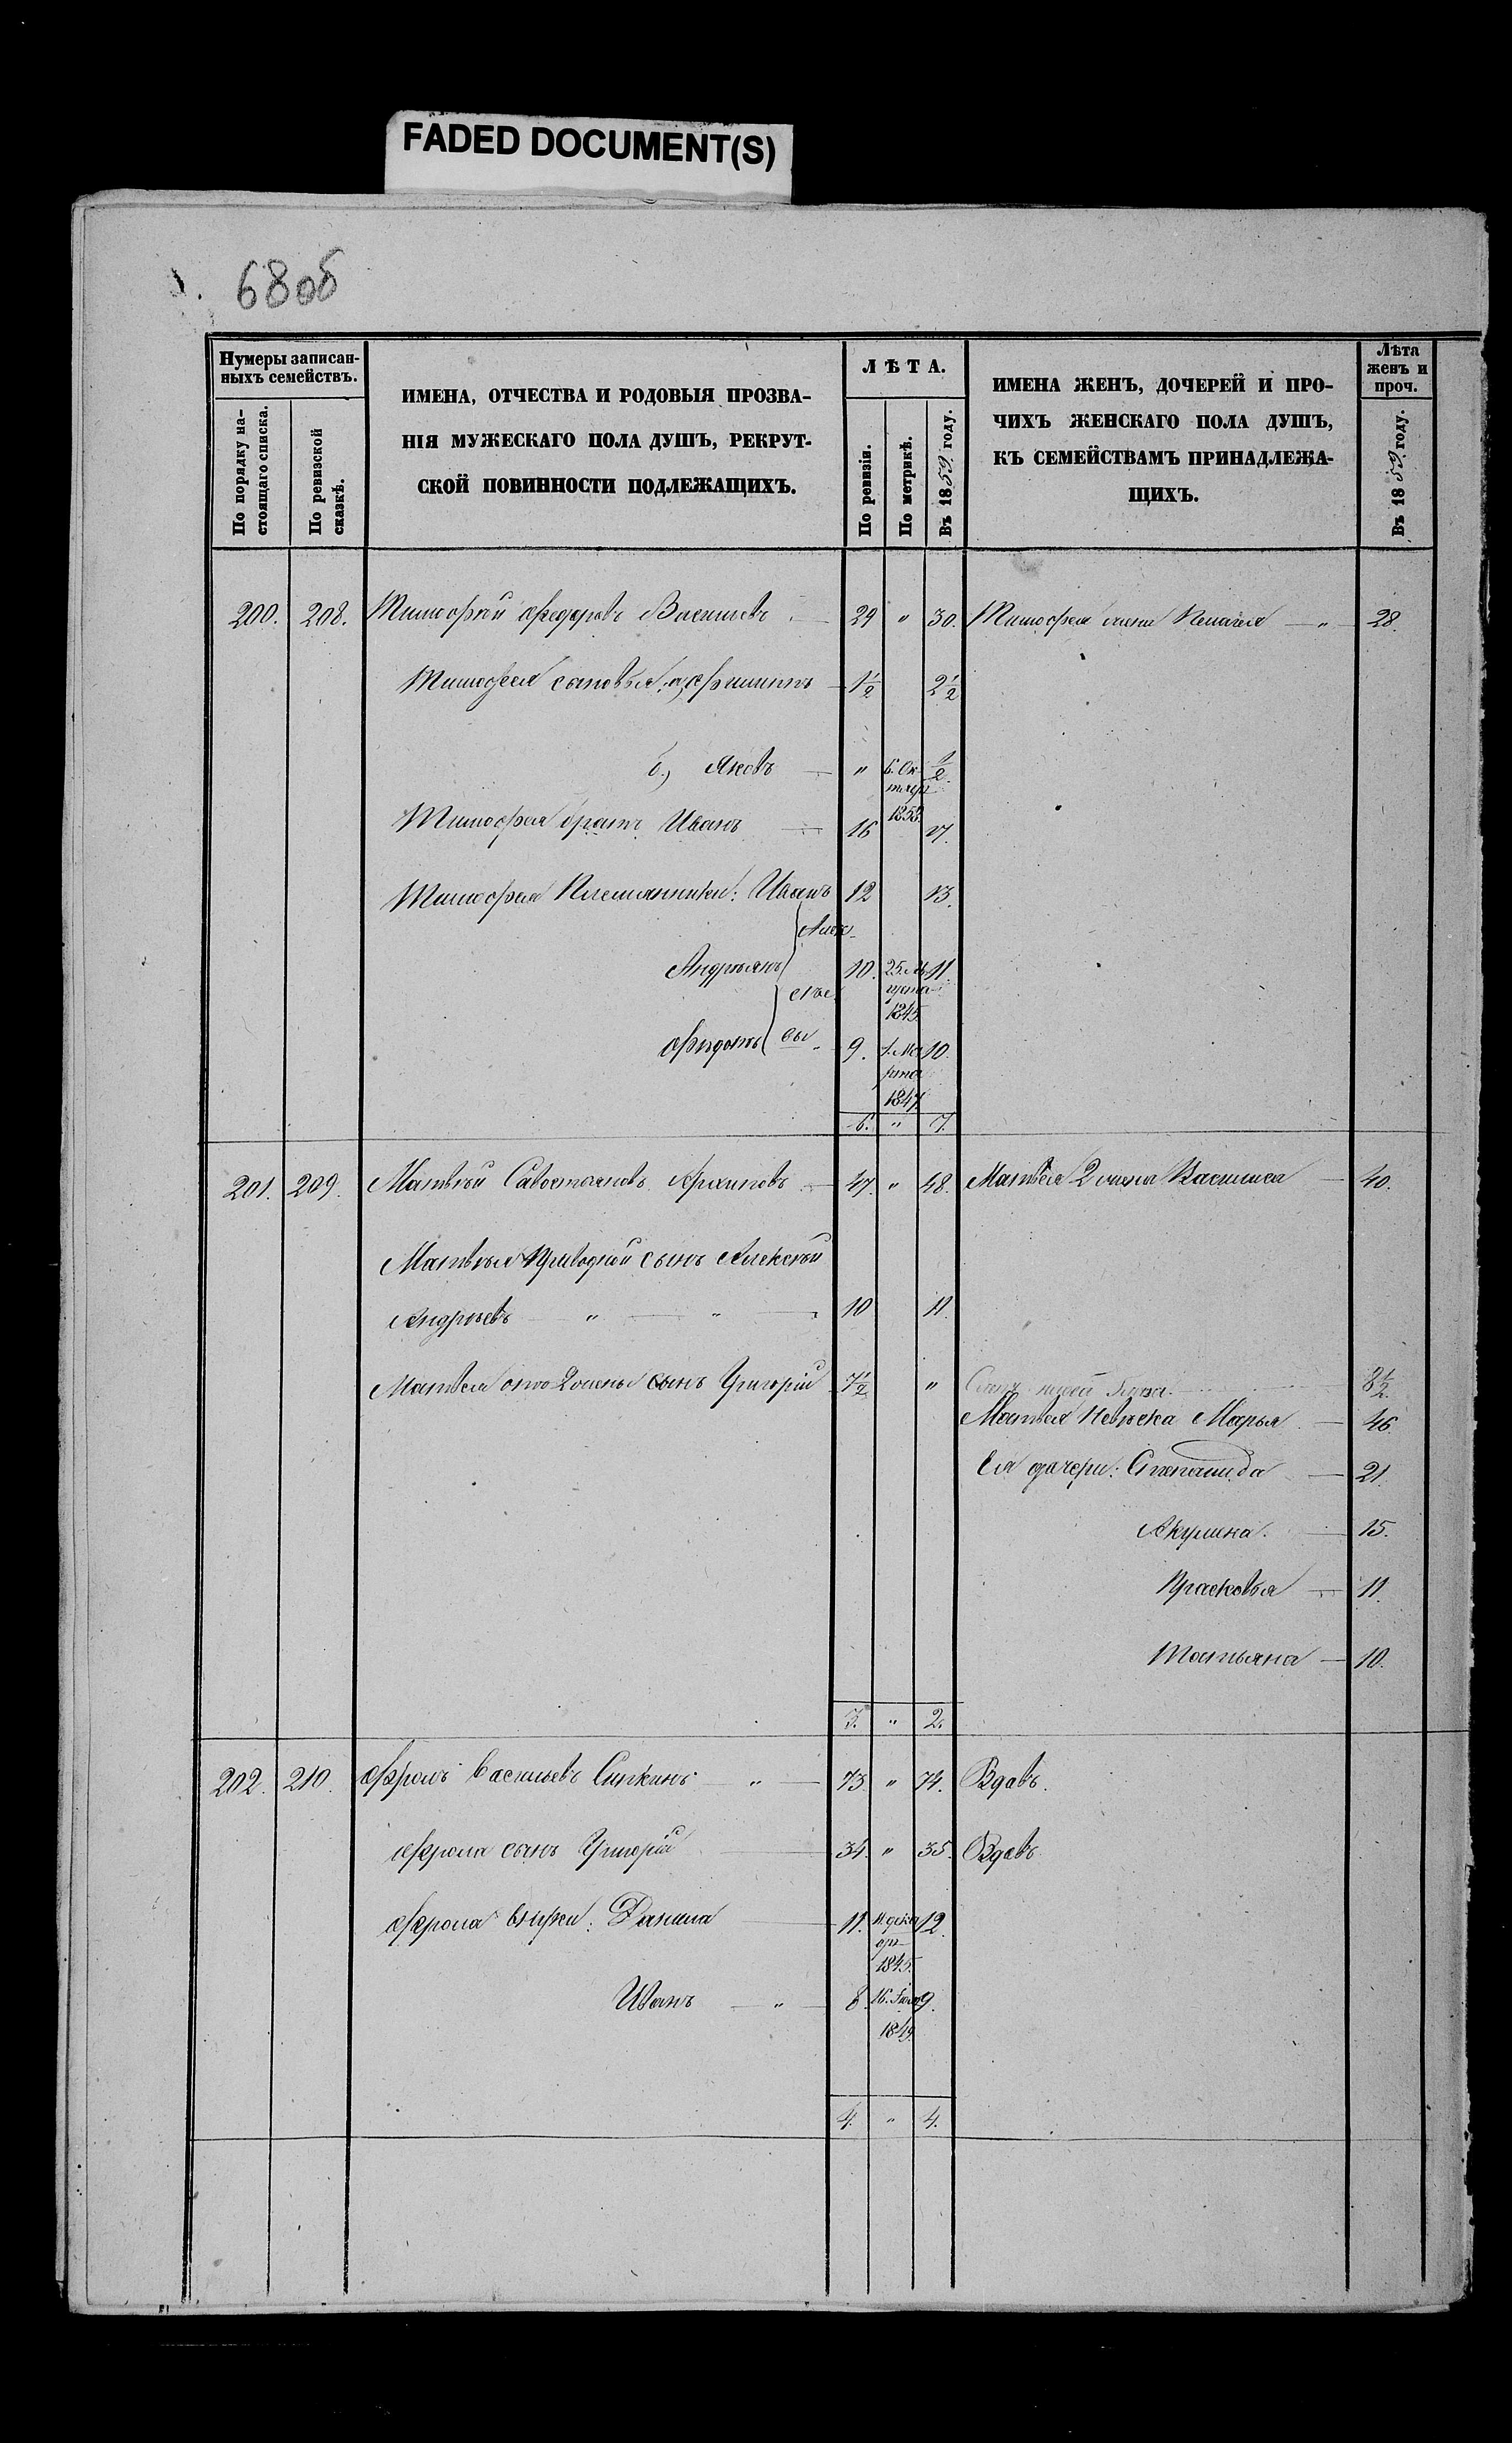 FADED DOCUMENT(S)
68об
Нумеры записан-
ныхъ семействъ.
По порядку на-
стоящаго списка.
По ревизской
сказкѣ.
ИМЕНА, ОТЧЕСТВА И РОДОВЫЯ ПРОЗВА-
НІЯ МУЖЕСКАГО ПОЛА ДУШЪ, РЕКРУТ-
СКОЙ ПОВИННОСТИ ПОДЛЕЖАЩИХЪ.
ЛѢТА.
По ревизіи.
По метрикѣ.
Въ 1859 году.
ИМЕНА ЖЕНЪ, ДОЧЕРЕЙ И ПРО-
ЧИХЪ ЖЕНСКАГО ПОЛА ДУШЪ,
КЪ СЕМЕЙСТВАМЪ ПРИНАДЛЕЖА-
ЩИХЪ.
Лѣта
женъ и
проч.
Въ 1859 году.
200. 208. Тимофѣй Федоровъ 29 " 30. Тимофея жена Пелагея — " 28.
Тимофея сыновья: а, Филиппъ — 1½ 2½
б, Яковъ — " 6. Ок- ½
тября
1858.
Тимофея братъ Иванъ — 16 17.
Тимофея Племянники: Иванъ 12 13.
Алек-
Андреянъ 10. 25. 11.
1845.
сѣе-
Федотъ вы 9. 1. Ма 10.
рта
1847
6. " 7.
201. 209. Матвѣй Савостьяновъ Архиповъ — 47. " 48. Матвѣя 2 жена Василиса — 40.
Матвѣя Приводной сынъ Алексѣй
Андреевъ — " — " — 10 11.
Матвея отъ 2 жены сынъ Григорій 7½ " 8½
Матвея Невѣска Марья — 46.
Ея дочери: Степанида — 21.
Акулина — 15.
Прасковья — 11.
Татьяна — 10.
3. " 2.
202. 210. Фролъ Васильевъ — " — 73. " 74. Вдовъ.
Фрола сынъ Григорій — 34. " 35. Вдовъ
Фрола внуки: Данила — 11. 11 дека 12.
бря
1845.
Иванъ — " — 8. 16. 9.
1849.
4. " 4.